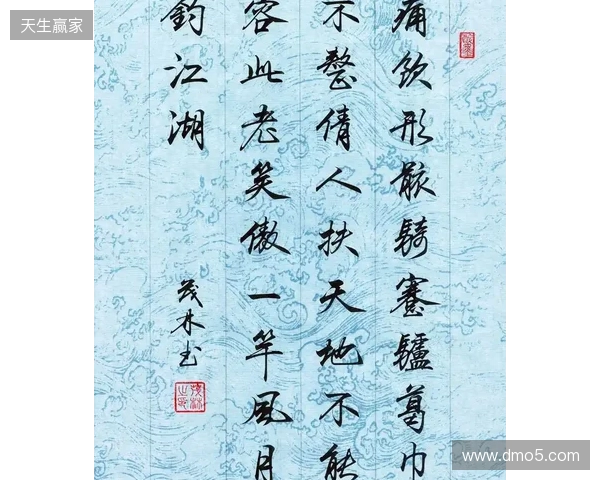 天生赢家
痛飲形骸騎蹇驢葛巾
不整倩人扶天地不能
容此老笑傲一竿風月
釣江湖
茂林书
www.dmo5.com